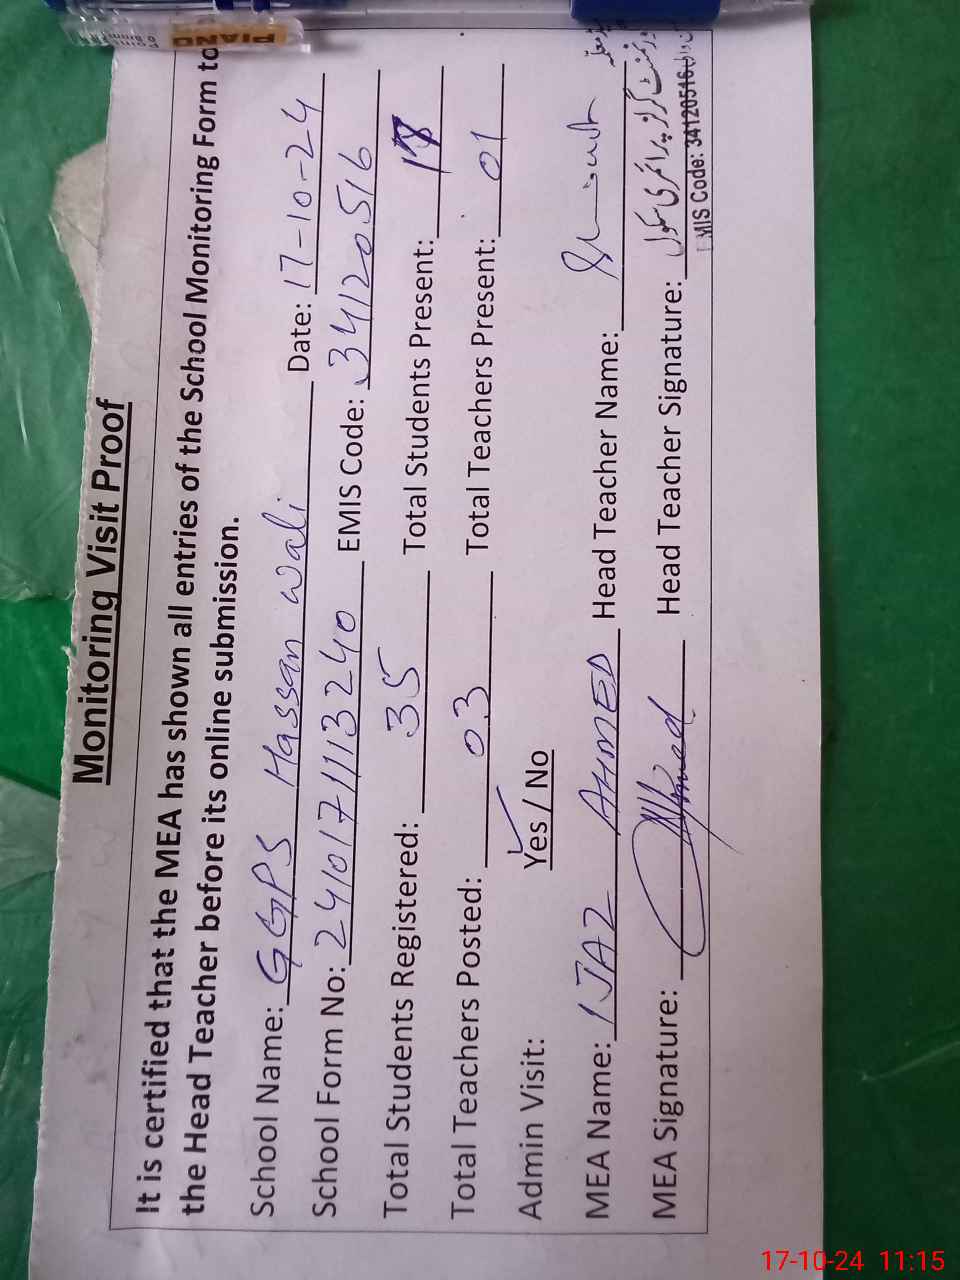 Monitoring Visit Proof
It is certified that the MEA has shown all entries of the School Monitoring Form to
the Head Teacher before its online submission.
School Name: GGPS Hassan Wali Date: 17-10-24
School Form No: 24101711113240 EMIS Code: 34120516
Total Students Registered: 35 Total Students Present:
Total Teachers Posted: 03 Total Teachers Present: 01
Admin Visit: Yes / No
MEA Name: IJAZ AHMED Head Teacher Name:
MEA Signature: Head Teacher Signature:
گورنمنٹ گرلز پرائمری سکول
MIS Code: 34120516
PIANO
17-10-24 11:15